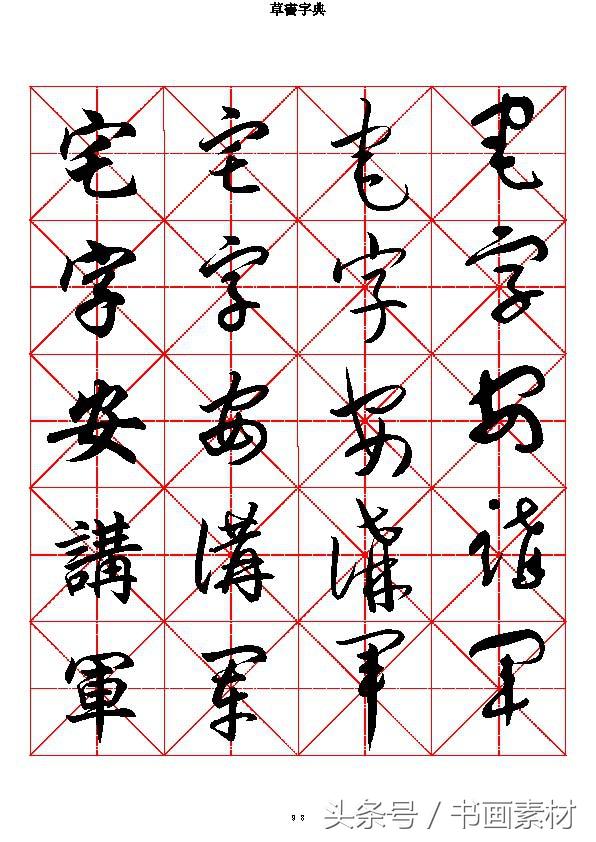 草書字典
宅宅宅宅
字字字字
安安安安
講講講講
軍軍軍軍
98
头条号 / 书画素材